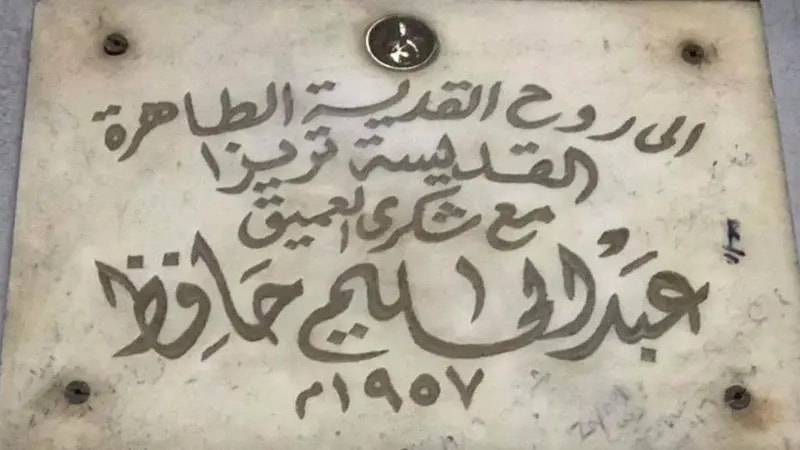 الى روح القديسة الطاهرة
القديسة تريزا
مع شكرى العميق
عَبْدُ الحليم حَافِظ
١٩٥٧م